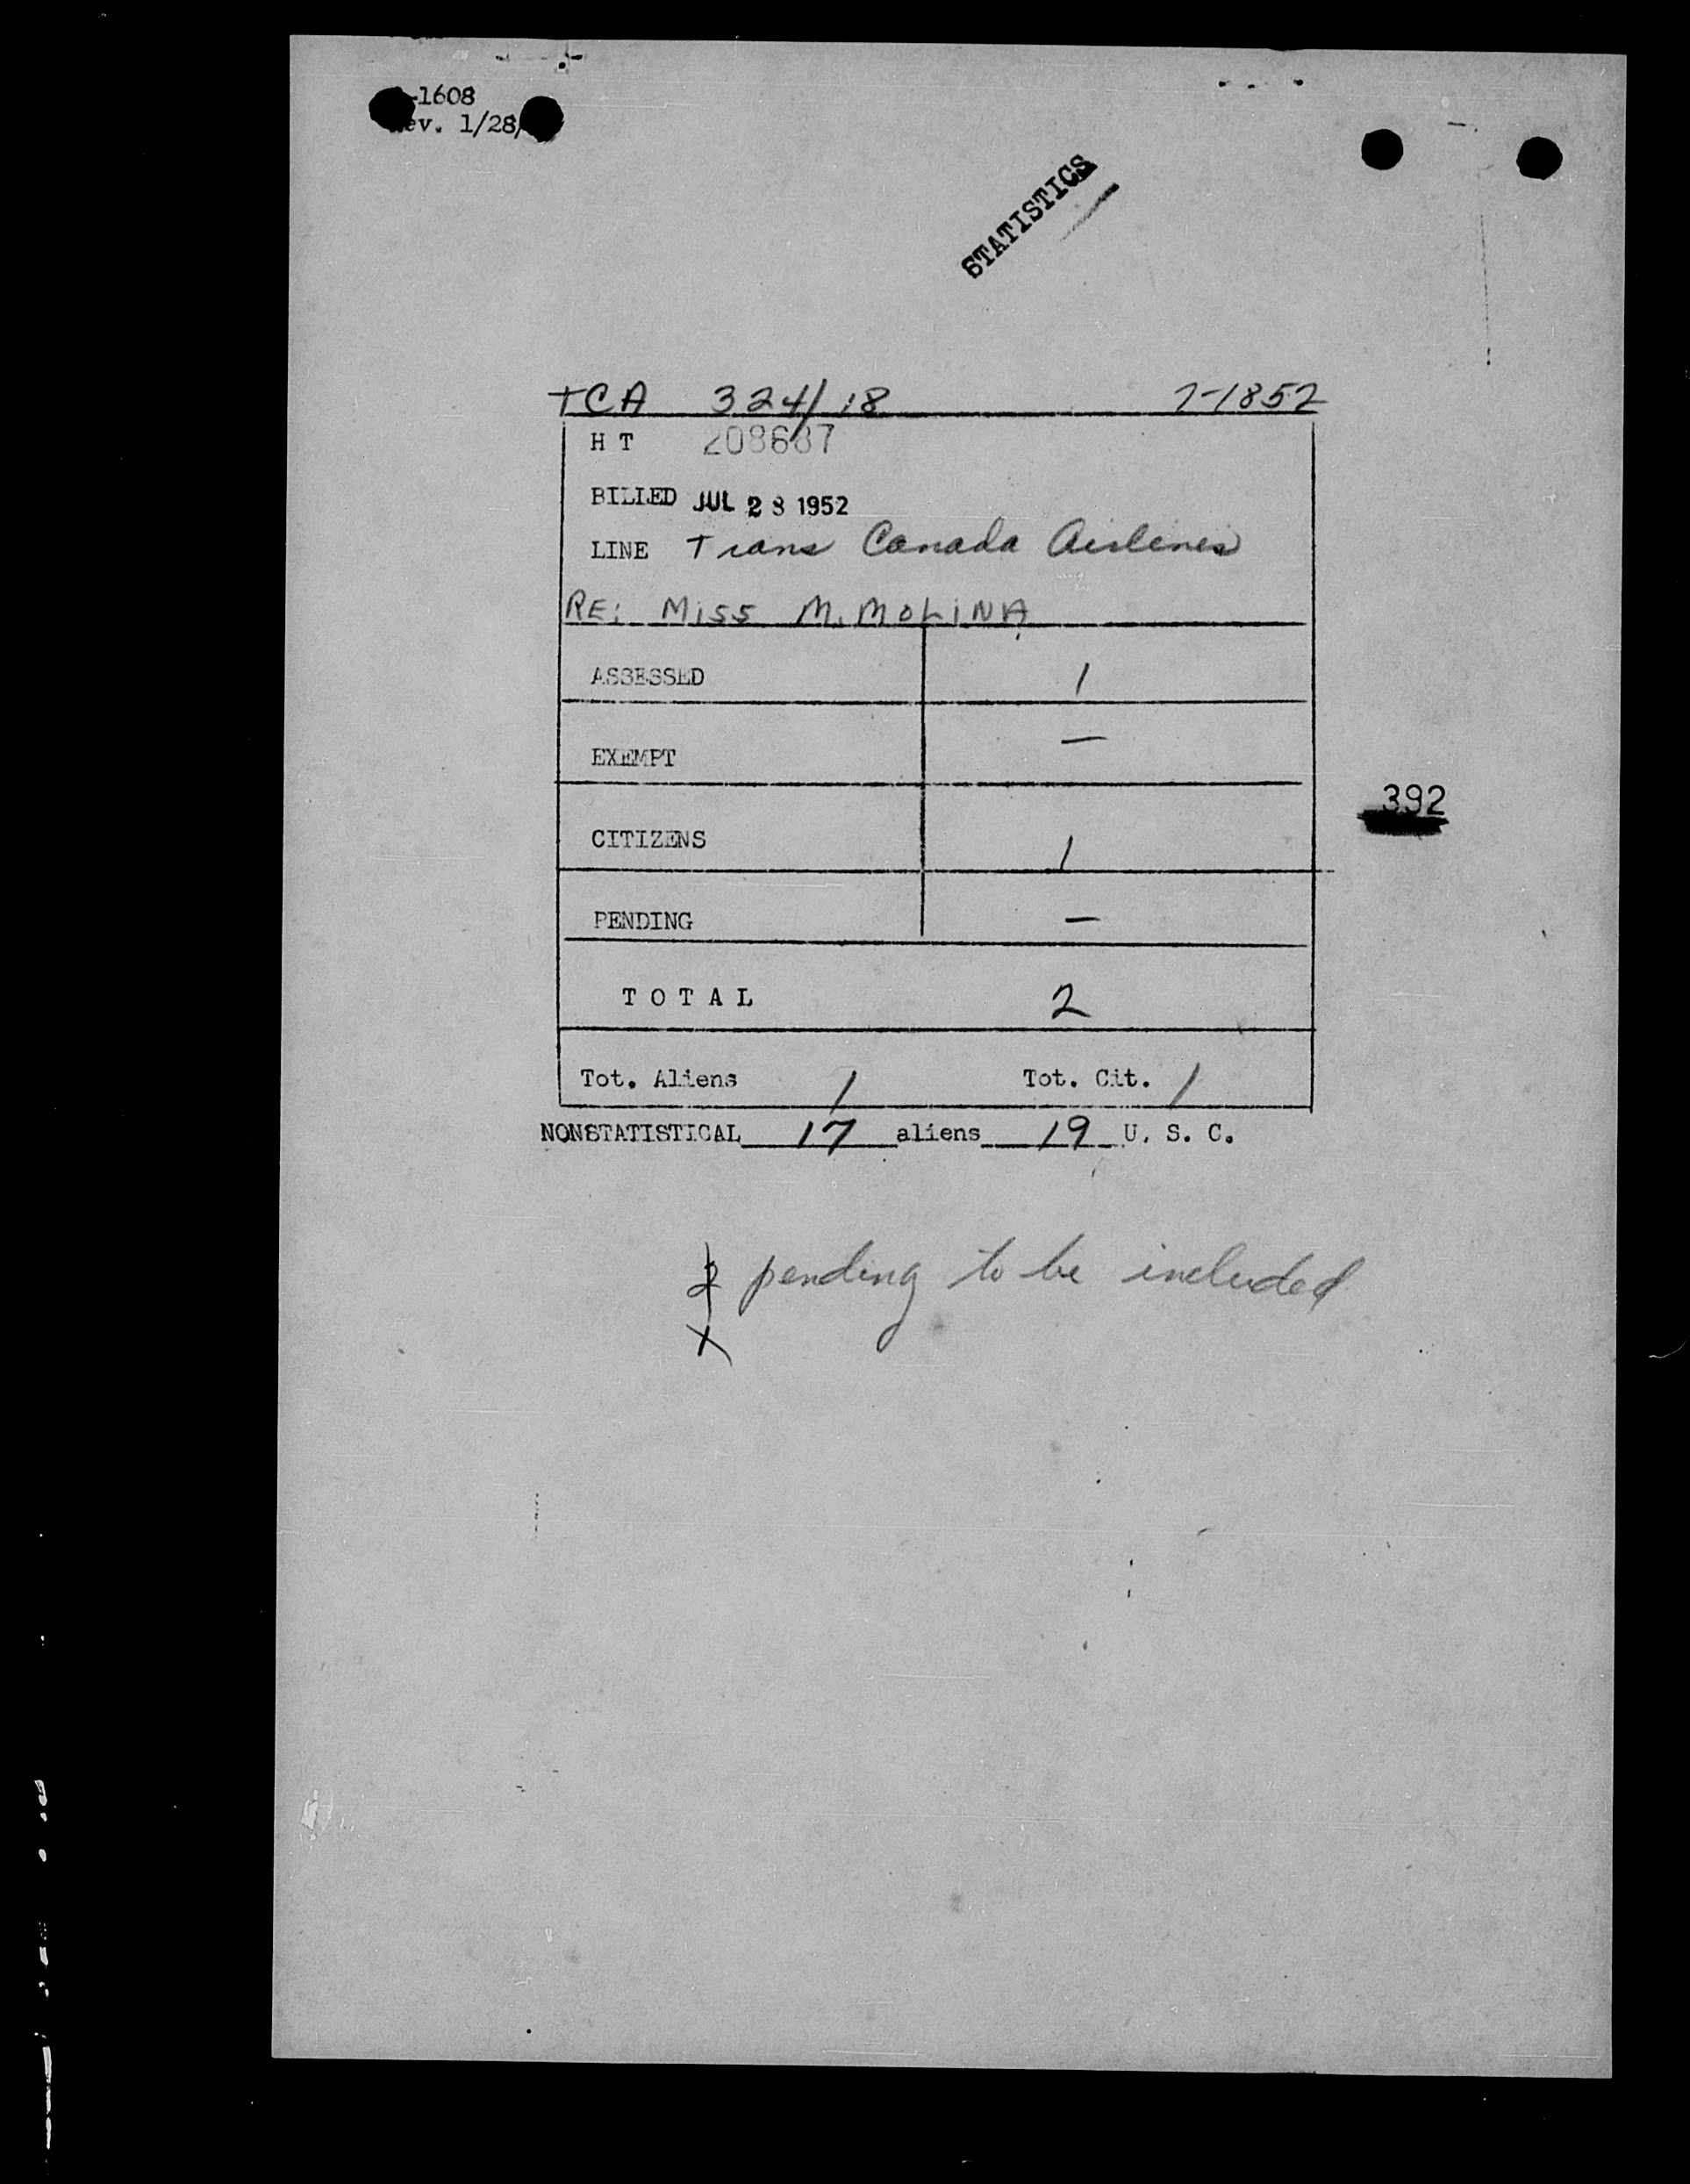 -1608
ev. 1/28/
STATISTICS
TCA 324/18 7-1852
H T 208687
BILLED JUL 28 1952
LINE Trans Canada Airlines
RE: Miss M. MOLINA
ASSESSED 1
EXEMPT —
392
CITIZENS 1
PENDING —
T O T A L 2
Tot. Aliens 1 Tot. Cit. 1
NONSTATISTICAL 17 aliens 19 U. S. C.
pending to be included
X